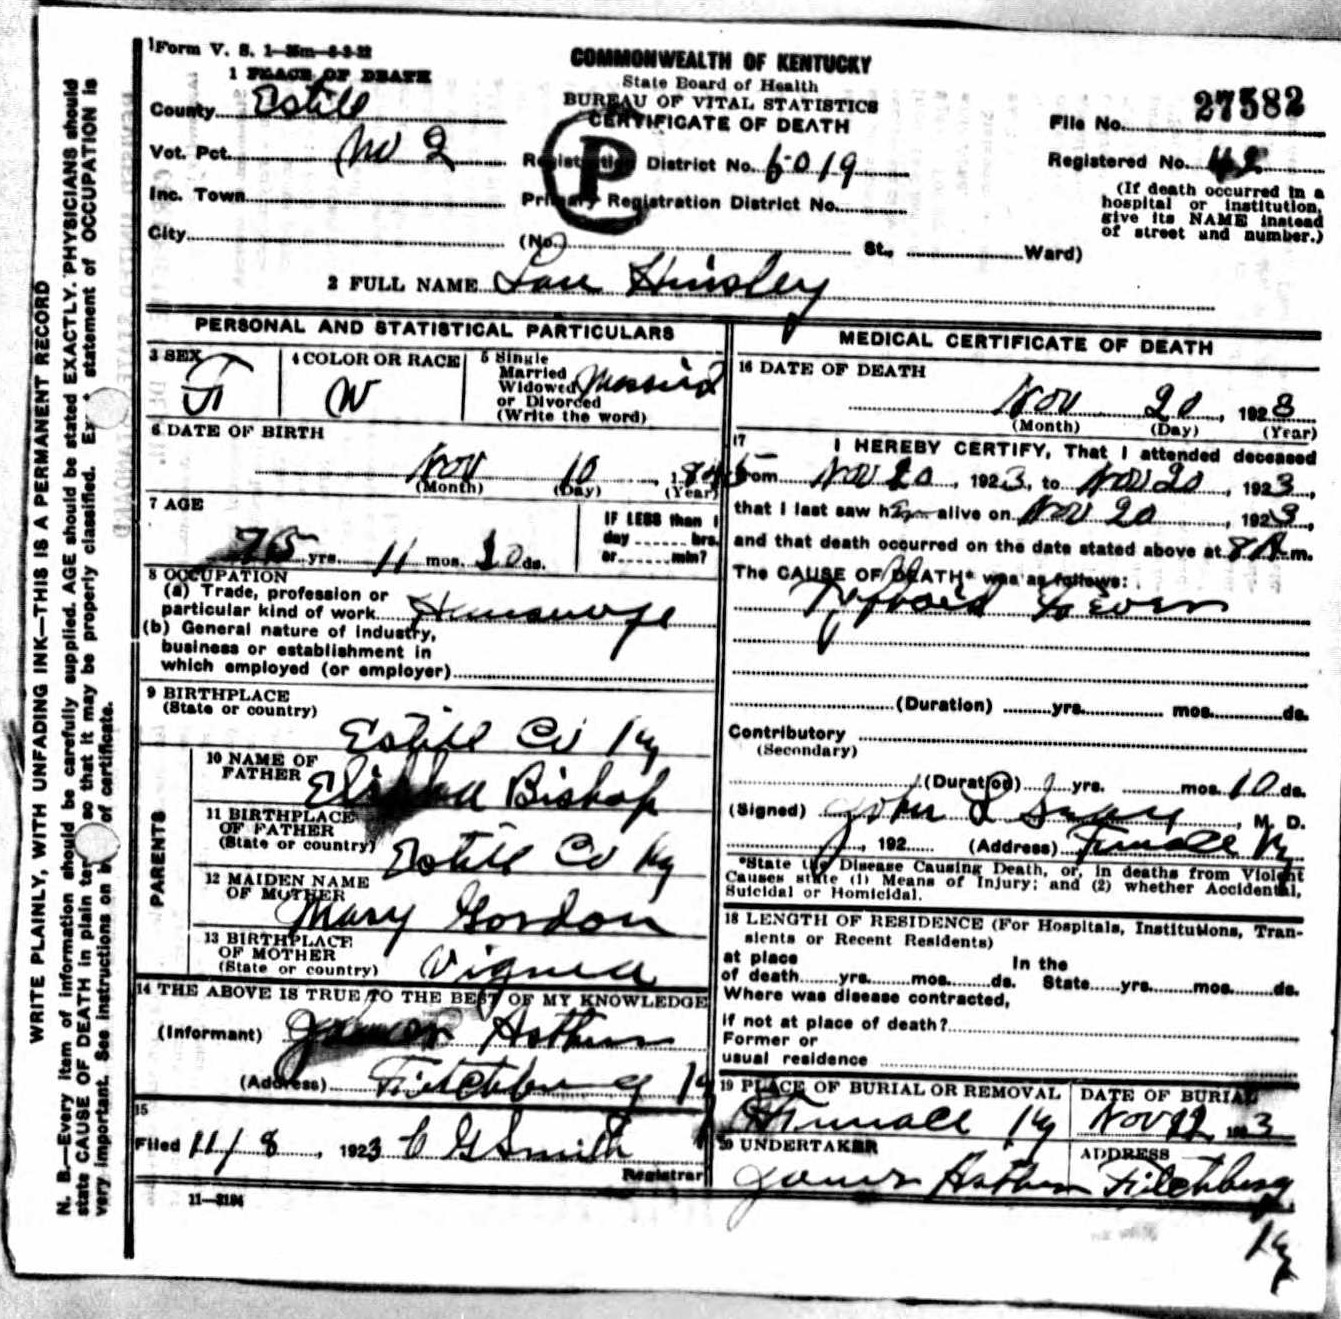 Form V. S. 1—35m—8-3-22
COMMONWEALTH OF KENTUCKY
State Board of Health
BUREAU OF VITAL STATISTICS
CERTIFICATE OF DEATH
1 PLACE OF DEATH
County Estill
Vot. Pct. No 2
Inc. Town
City
P
Registration District No. 6019
Primary Registration District No.
(No. St., Ward)
File No. 27582
Registered No. 42
(If death occurred in a
hospital or institution,
give its NAME instead
of street and number.)
2 FULL NAME Hinsley
PERSONAL AND STATISTICAL PARTICULARS
3 SEX F
4 COLOR OR RACE W
5 Single
Married
Widowed
or Divorced
(Write the word) Married
6 DATE OF BIRTH
Nov 10
(Month) (Day) (Year)
7 AGE
75 yrs. 11 mos. 10 ds.
IF LESS than 1
day hrs.
or min?
8 OCCUPATION
(a) Trade, profession or
particular kind of work Housewife
(b) General nature of industry,
business or establishment in
which employed (or employer)
9 BIRTHPLACE
(State or country)
Estill Co Ky
PARENTS
10 NAME OF
FATHER Elisha Bishop
11 BIRTHPLACE
OF FATHER
(State or country) Estill Co Ky
12 MAIDEN NAME
OF MOTHER Mary Gordon
13 BIRTHPLACE
OF MOTHER
(State or country)
14 THE ABOVE IS TRUE TO THE BEST OF MY KNOWLEDGE
(Informant)
(Address) Fitchburg Ky
15
Filed 11/8, 1923 C G Smith
Registrar
11—3184
MEDICAL CERTIFICATE OF DEATH
16 DATE OF DEATH
Nov 20, 1923
(Month) (Day) (Year)
17 I HEREBY CERTIFY, That I attended deceased
from Nov 20, 1923, to Nov 20, 1923,
that I last saw her alive on Nov 20, 1923,
and that death occurred on the date stated above at 8 A.m.
The CAUSE OF DEATH* was as follows:
Typhoid Fever
(Duration) yrs. mos. ds.
Contributory
(Secondary)
(Duration) yrs. mos. 10 ds.
(Signed) John L, M. D.
, 192 (Address) Ky
*State the Disease Causing Death, or, in deaths from Violent
Causes state (1) Means of Injury; and (2) whether Accidental,
Suicidal or Homicidal.
18 LENGTH OF RESIDENCE (For Hospitals, Institutions, Tran-
sients or Recent Residents)
at place In the
of death yrs. mos. ds. State yrs. mos. ds.
Where was disease contracted,
if not at place of death?
Former or
usual residence
19 PLACE OF BURIAL OR REMOVAL
Ky
DATE OF BURIAL
Nov 22 1923
20 UNDERTAKER
ADDRESS
Fitchburg
Ky
WRITE PLAINLY, WITH UNFADING INK—THIS IS A PERMANENT RECORD
N. B.—Every item of information should be carefully supplied. AGE should be stated EXACTLY. PHYSICIANS should
state CAUSE OF DEATH in plain so that it may be properly classified. statement of OCCUPATION is
very important. See instructions on of certificate.